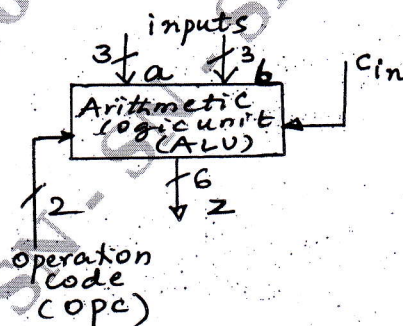 inputs
3 3
a b Cin
Arithmetic
Logic unit
(ALU)
6
2 Z
operation
code
(OPC)